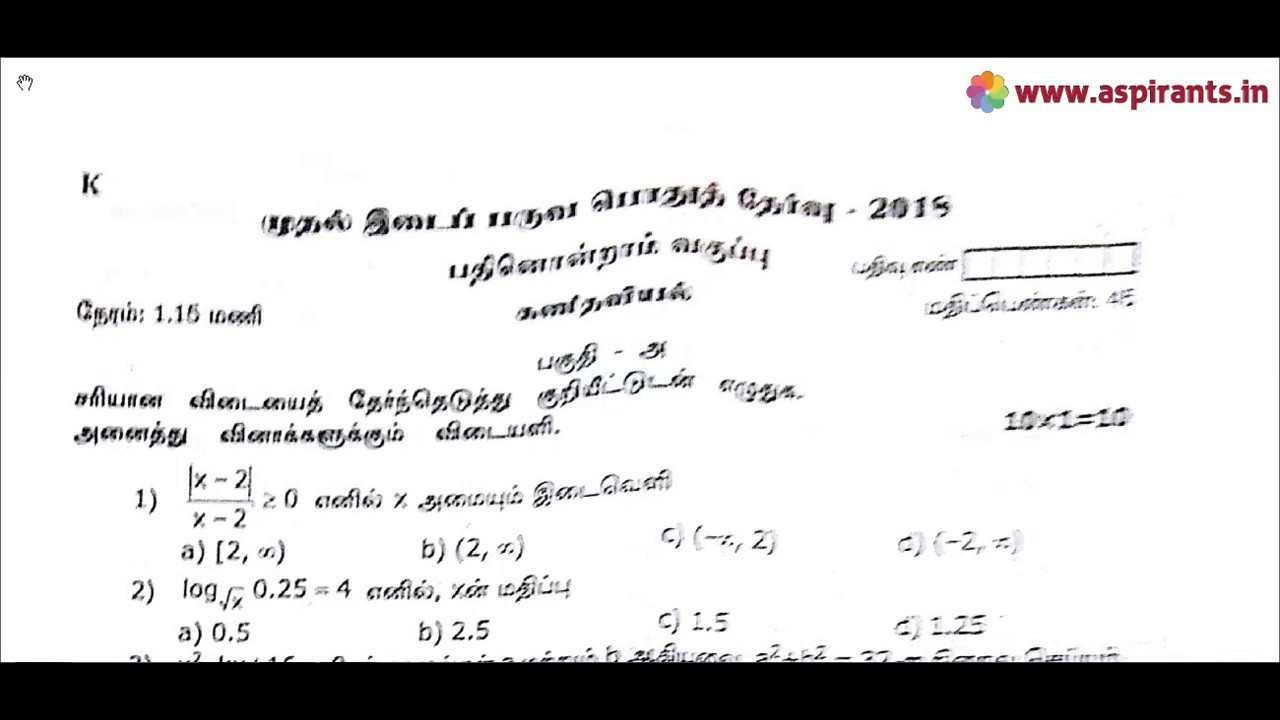 www.aspirants.in
K
முதல் இடைப் பருவ பொதுத் தேர்வு - 2018
பதினொன்றாம் வகுப்பு
பதிவு எண்
கணிதவியல்
நேரம்: 1.15 மணி
மதிப்பெண்கள்: 45
பகுதி - அ
சரியான விடையைத் தேர்ந்தெடுத்து குறியீட்டுடன் எழுதுக.
அனைத்து வினாக்களுக்கும் விடையளி.
10×1=10
1) |x − 2| / x − 2 ≥ 0 எனில் x அமையும் இடைவெளி
a) [2, ∞) b) (2, ∞) c) (−∞, 2) d) (−2, ∞)
2) log√x 0.25 = 4 எனில், xன் மதிப்பு
a) 0.5 b) 2.5 c) 1.5 d) 1.25